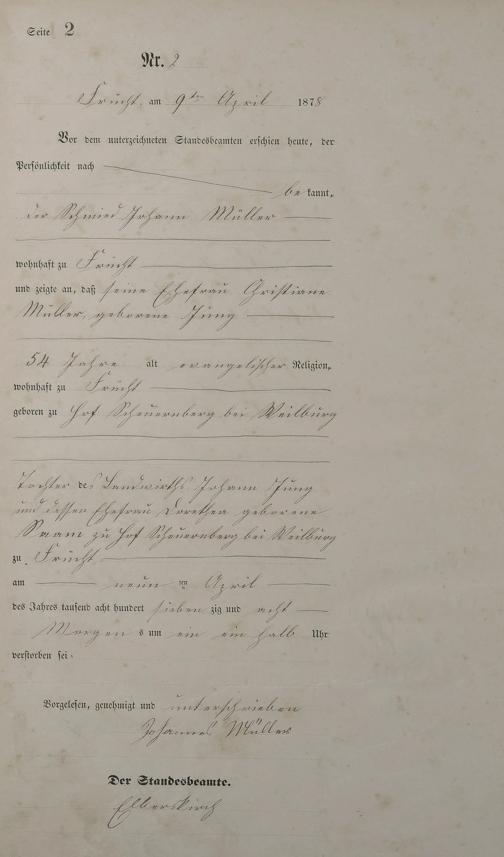 Seite 2
Nr. 2
Frücht, am 9ten April 1878
Vor dem unterzeichneten Standesbeamten erschien heute, der
Persönlichkeit nach
be kannt,
der Schmied Johann Müller
wohnhaft zu Frücht
und zeigte an, daß seine Ehefrau Christiane
Müller, geborene Jung
54 Jahre alt evangelischer Religion,
wohnhaft zu Frücht
geboren zu Hof Scheuernberg bei Weilburg
Tochter des Landwirths Johann Jung
und dessen Ehefrau Dorothea geborene
Saam zu Hof Scheuernberg bei Weilburg
zu Frücht
am neun ten April
des Jahres tausend acht hundert sieben zig und acht
Morgen s um ein ein halb Uhr
verstorben sei.
Vorgelesen, genehmigt und unterschrieben
Johannes Müller
Der Standesbeamte.
Elberskirch